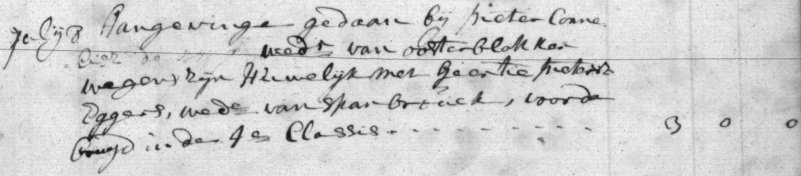 Aangevinge gedaan bij Pieter Corne
wedr van oosterblokker
wegens zijn Huwelijk met Geertie Pieters
Eggers, wede van Spanbroeck, voorde
bruyd in de 4e Classis 3 0 0